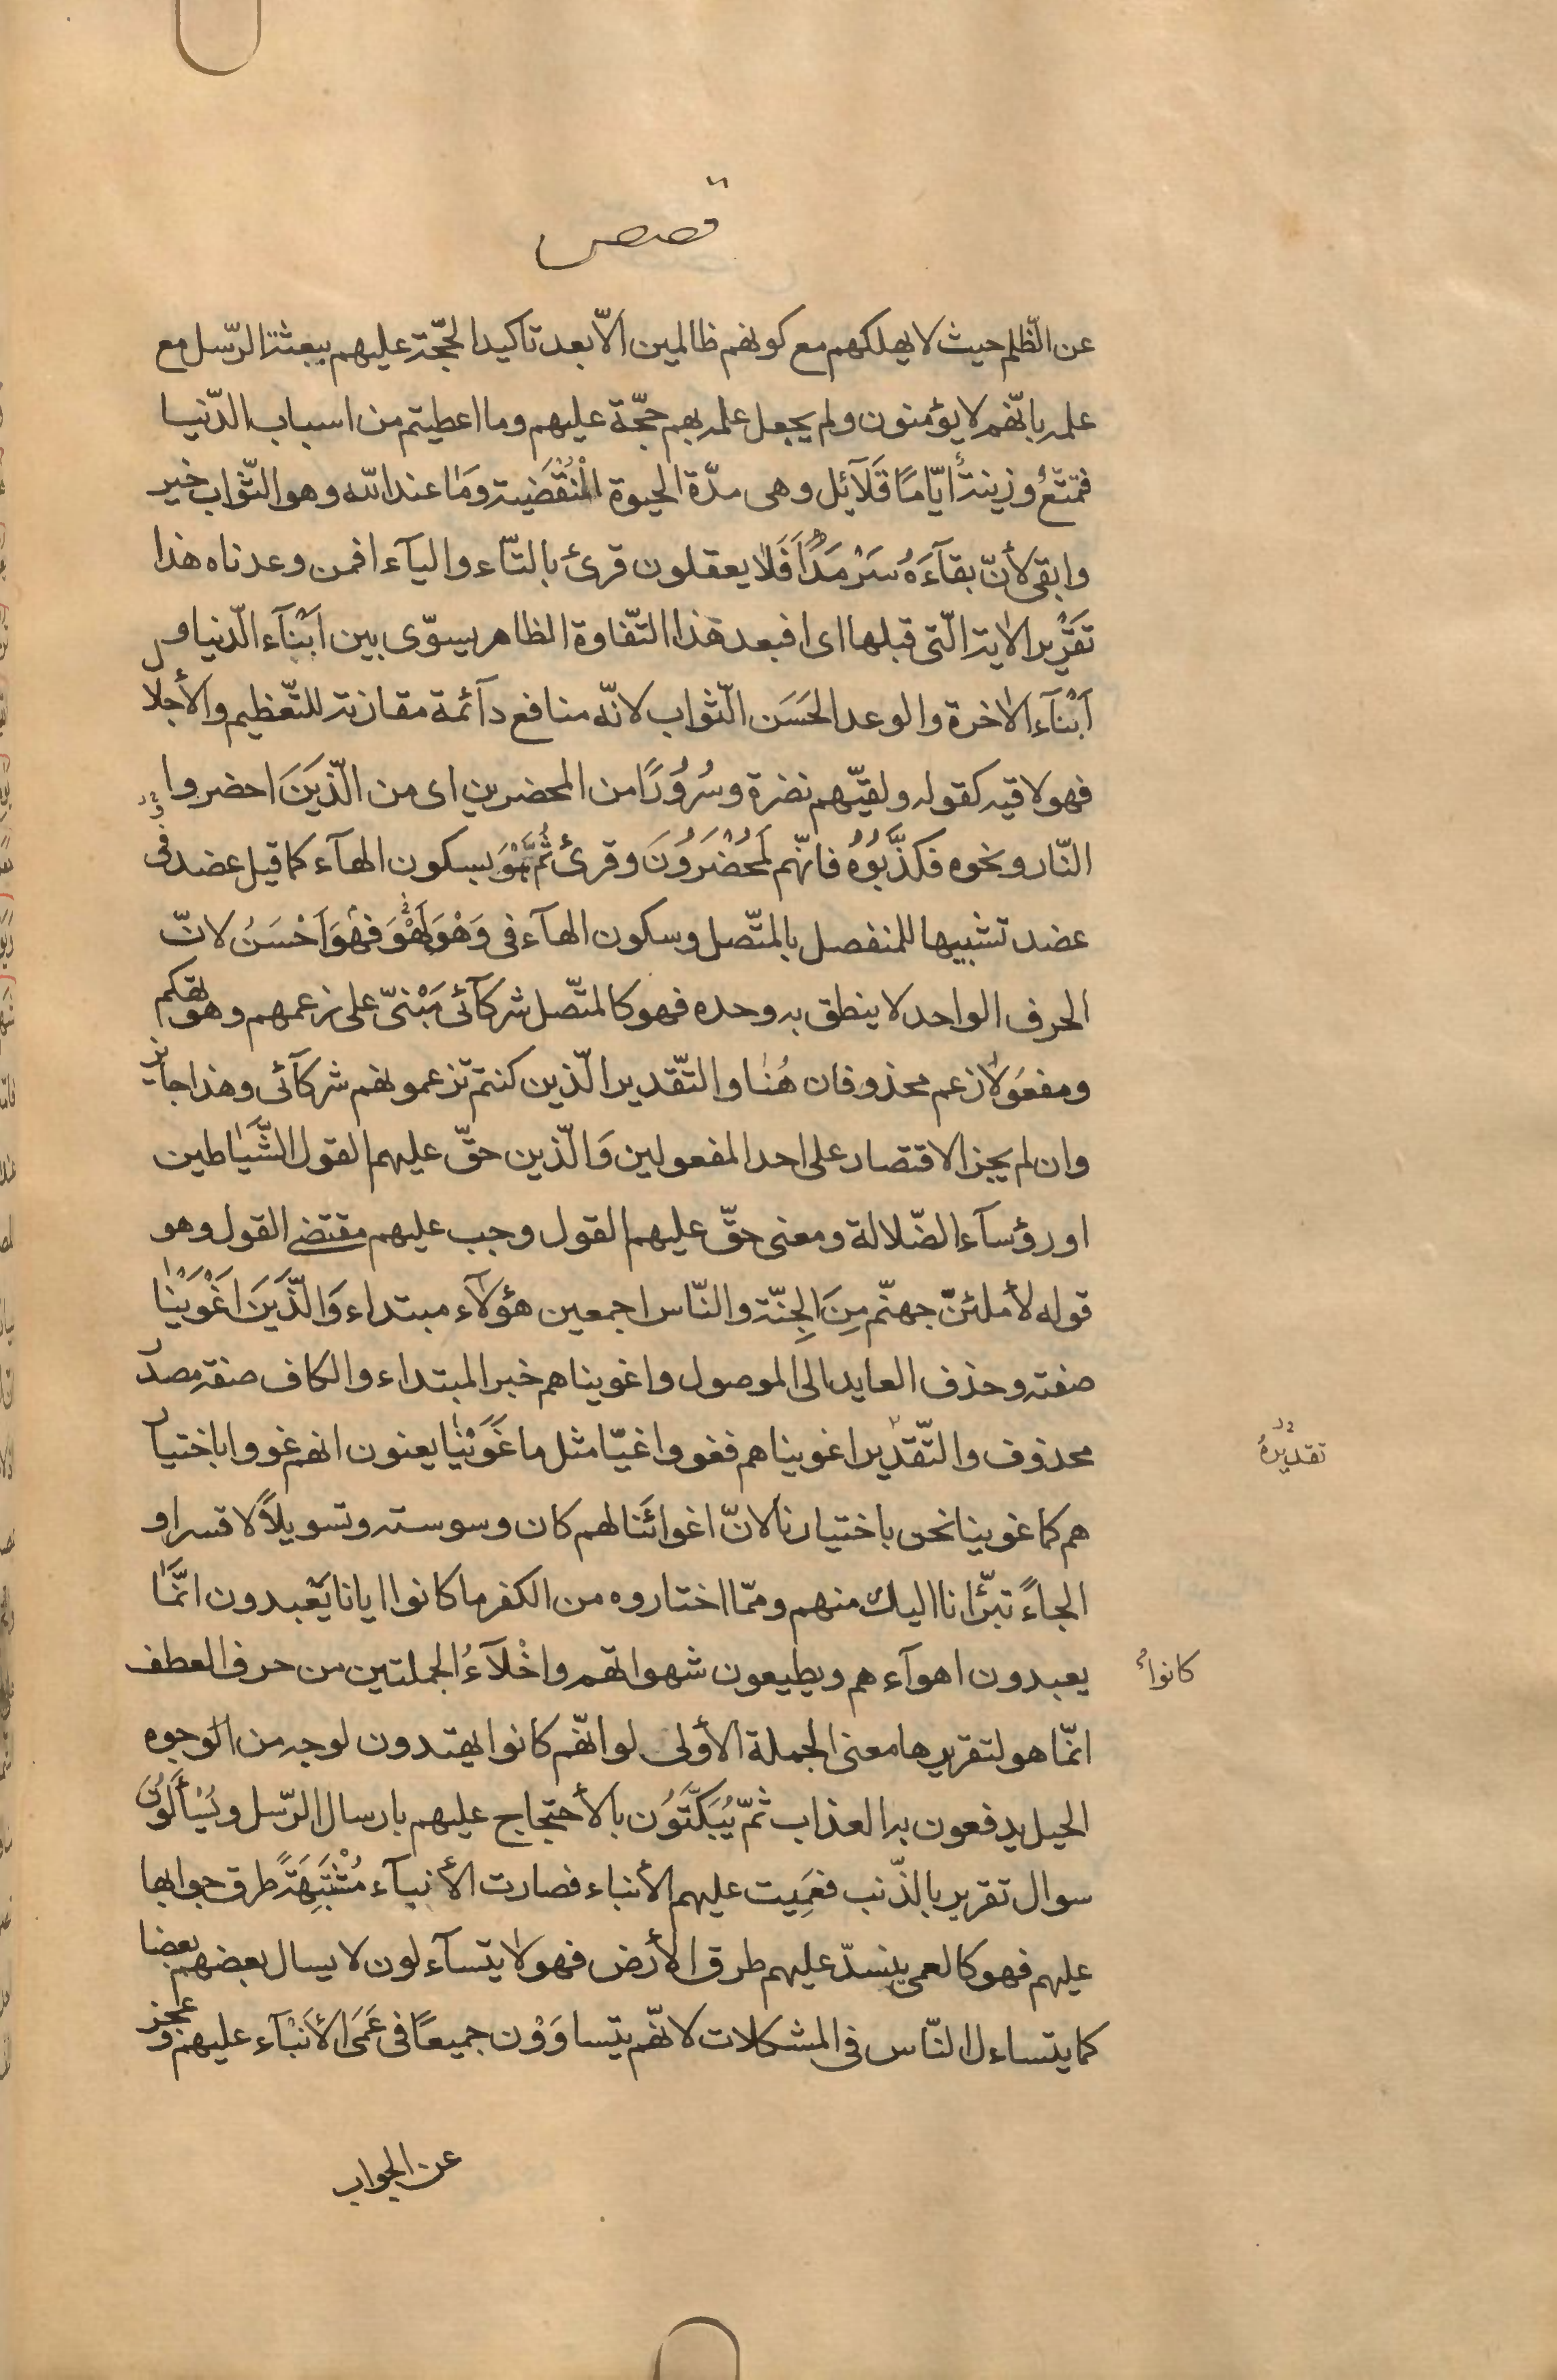 قصص
عن الظّلم حيث لا يهلكهم مع كونهم ظالمين الّا بعد تاكيد الحجّة عليهم ببعثة الرّسل مع
علمه بانّهم لا يؤمنون ولم يجعل علمه بهم حجّة عليهم وما اعطيتم من اسباب الدّنيا
فتمتّعٌ وزينةٌ ايّامًا قَلآئل وهى مدّة الحيوة الْمُنْقَضِية ومَا عند اللّه وهو الثّواب خير
وابقى لأنّ بقآءَهُ سَرْمَدٌ اَفَلا يعقلون قرئ بالتّاء والياء افمن وعدناه هذا
تَقْرِير الاية الّتى قبلها اى افبعد هذا التّفاوة الظاهر يسوّى بين اَبْنآء الدّنيا و
اَبْنآء الاخرة والوعد الحَسَن الثّواب لانّه منافع دآئمة مقارنة للتّعظيم والأجلا
فهو لاقيه كقوله ولقيّهم نضرة وسُرُورًا من المحضرين اى من الّذِينَ احضروا
النّار ونحوه فكذّبُوُه فانّهم لَمُحْضَرُونَ وقرئ ثُمَّ هْوَ بسكون الهآء كما قيل عضد فى
عضد تشبيها للمنفصل بالمتّصل وسكون الهآء فى وَهْوَ لَهْوَ فهْوَ اَحْسَنُ لانّ
الحرف الواحد لا ينطق به وحده فهو كالمتّصل شركآئى مَبْنىّ على زعمهم وهو تهكم
ومفعَولا زعم محذوفان هُنا والتّقدير الّذين كنتم تزعمونهم شركآئى وهذا جايز
وان لم يجز الاقتصار على احد المفعولين وَالّذين حقّ عليهم القول الشّيَاطين
او رؤسآء الضّلالة ومعنى حقّ عليهم القول وجب عليهم مقتضى القول وهو
قوله لأملئنّ جهنّم مِنَ الجِنّة والنّاس اجمعين هؤلآء مبتداء وَالّذِينَ اَغْوَيْنا
صفته وحذف العايد الى الموصول واغويناهم خبر المبتداء والكاف صفة مصدر
محذوف والتّقدير اغويناهم فغووا غيّا مثل ما غَوَيْنا يعنون انهم غووا باختيار
تقديرهُ
هم كما غوينا نحن باختيارنا لانّ اغوائَنا لهم كان وسوسة وتسويلاً لا قسرا و
الجاءً تبرّانا اليك منهم وممّا اختاروه من الكفر ما كانوا ايانا يَعبدون انّمَا
يعبدون اهوآءهم ويطيعون شهواتهم واخْلآءُ الجملتين من حرف العطف
كانوا
انّما هو لتقريرها معنى الجملة الأولى لو انّهم كانوا يهتدون لوجه من الوجوه
الحيل يدفعون به العذاب ثمّ يُبَكَّتُون بالأحتجاج عليهم بارسال الرّسل ويُسْأَلُون
سوال تقرير بالذّنب فعَمِيت عليهم الأنباء فصارت الأنبآء مُشْتَبِهَةً طرق جوابها
عليهم فهو كالعمى ينسدّ عليهم طرق الأرض فهو لا يتسآءلون لا يسال بعضهم بعضا
كما يتساءل النّاس فى المشكلات لانّهم يتساوَوْن جميعًا فى عَمَى الأَنْبآء عليهم وعجز
عن الجواب